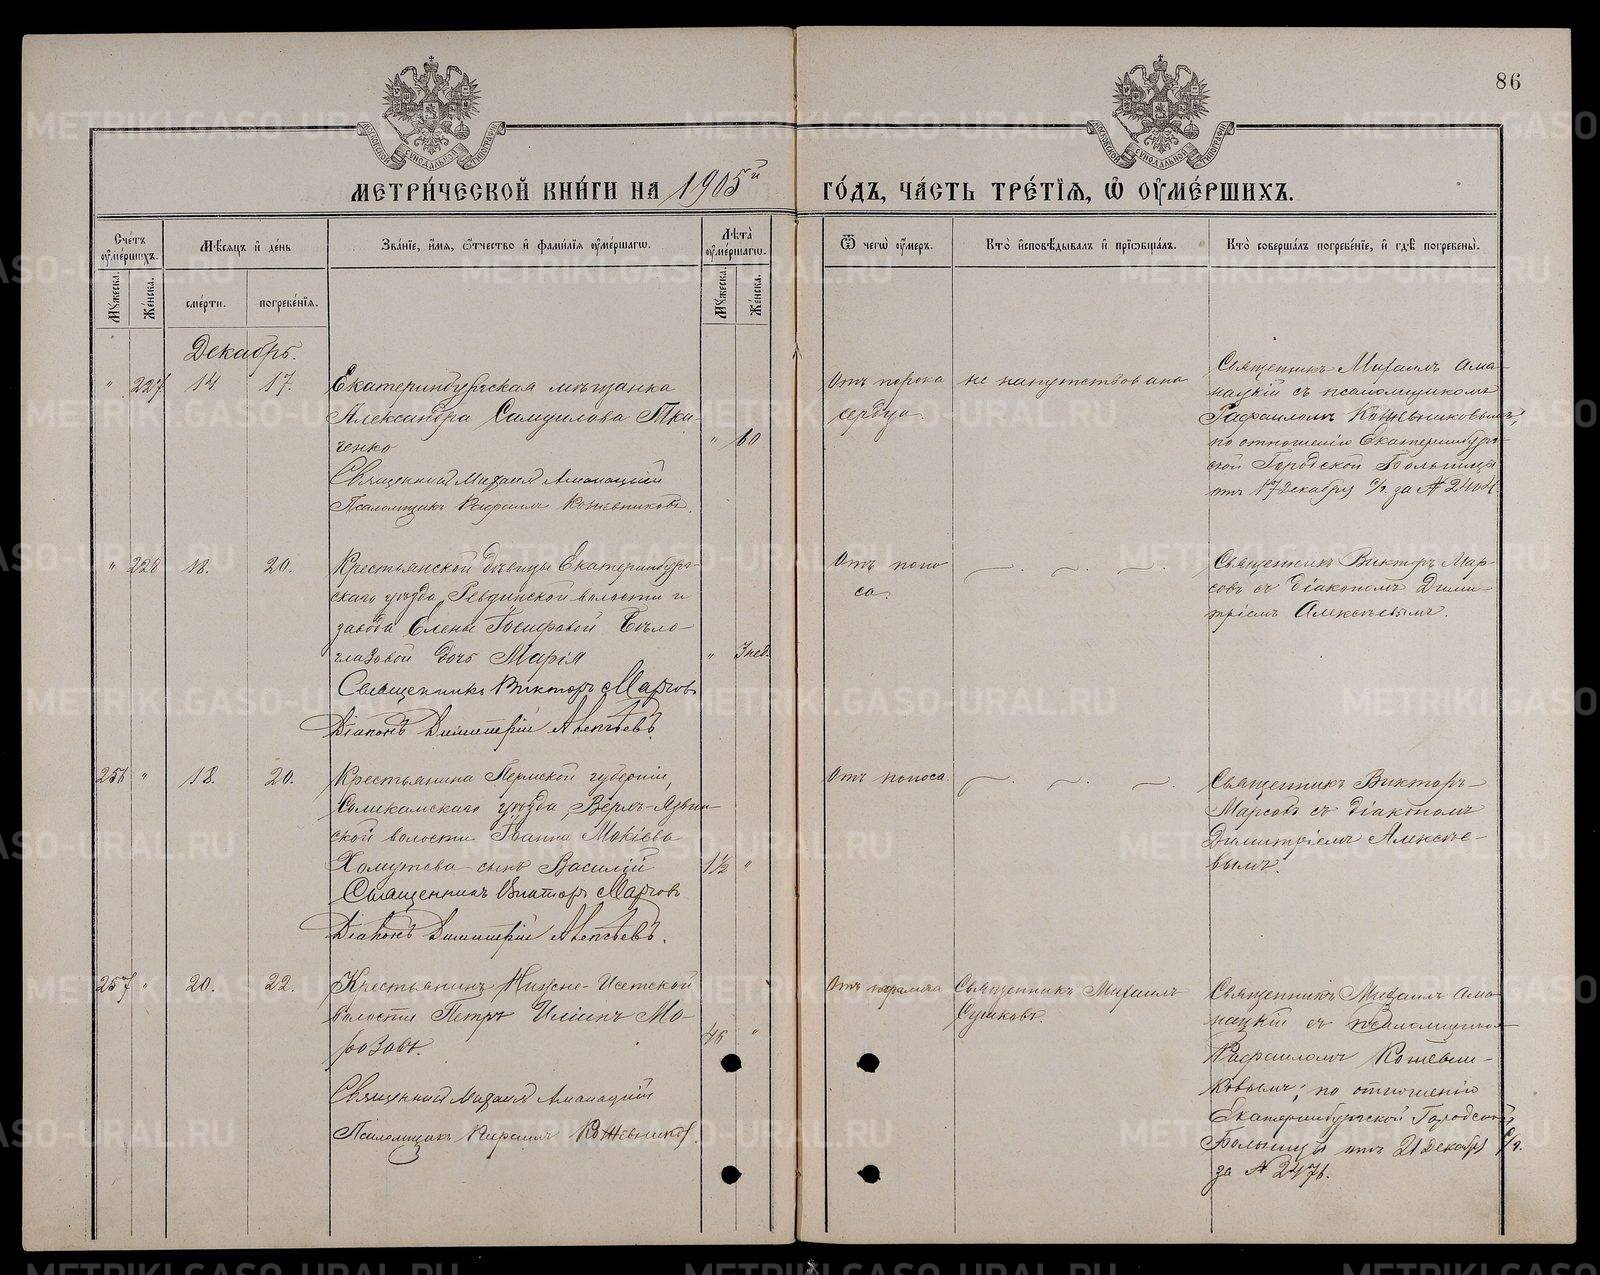 86
МЕТРИ́ЧЕСКОЙ КНИ́ГИ НА 1905й ГО́ДЪ, ЧА́СТЬ ТРЕ́ТІѦ, Ѽ ОУ҆МЕ́РШИХЪ.
Счéтъ оу҆мéршихъ.
Мꙋжеска.
Жéнска.
Мѣ́сяцъ и҆ дéнь
смéрти.
погребéнїѧ.
Звáнїе, и҆́мѧ, ѻ҆́тчество и҆ фамѝлїѧ оу҆мéршагѡ.
Лѣ́та оу҆мéршагѡ.
Мꙋжеска.
Жéнска.
Ѿ чегѡ̀ оу҆́меръ.
Ктò и҆сповѣ́дывалъ и҆ прїѡбщáлъ.
Ктò совершáлъ погребéнїе, и҆ гдѣ̀ погребены̀.
Декабрь.
" 227 14 17.
Екатеринбургская мѣщанка
Александра Самуилова Тка-
ченко
" 60
Священникъ Михаилъ
Псаломщикъ Рафаилъ Кожевниковъ.
Отъ порока
сердца.
не напутствована
Священникъ Михаилъ
съ псаломщикомъ
Рафаиломъ Кожевниковымъ,
по отношенію Екатеринбург-
ской Городской Больницы
отъ 17 Декабря с/г. за № 2404.
" 228 18. 20.
Крестьянской дѣвицы Екатеринбург-
скаго уѣзда, Ревдинской волости и
завода Елены Іосифовой Бѣло-
глазовой дочь Марія
" 3 нед.
Священникъ Викторъ Марсовъ
Діаконъ Димитрій Алексѣевъ.
Отъ поно
са.
Священникъ Викторъ Мар-
совъ съ діакономъ Дими-
тріемъ Алексѣевымъ.
256 " 18. 20.
Крестьянина Пермской губерніи,
Соликамскаго уѣзда, Верхъ-Язьви
ской волости Іоанна Мокіева
Хомутова сынъ Василій
1½ "
Священникъ Викторъ Марсовъ
Діаконъ Димитрій Алексѣевъ.
Отъ поноса.
Священникъ Викторъ
Марсовъ съ діакономъ
Димитріемъ Алексѣе-
вымъ.
257 " 20. 22.
Крестьянинъ Нижне-Исетской
волости Петръ Иліинъ Мо-
розовъ.
46 "
Священникъ Михаилъ
Псаломщикъ Рафаилъ Кожевниковъ.
Отъ паралича
Священникъ Михаилъ
Сушковъ.
Священникъ Михаилъ
съ псаломщикомъ
Рафаиломъ Кожевни-
ковымъ, по отношенію
Екатеринбургской Городской
Больницы отъ 21 Декабря с/г.
за № 2476.
METRIKI.GASO-URAL.RU